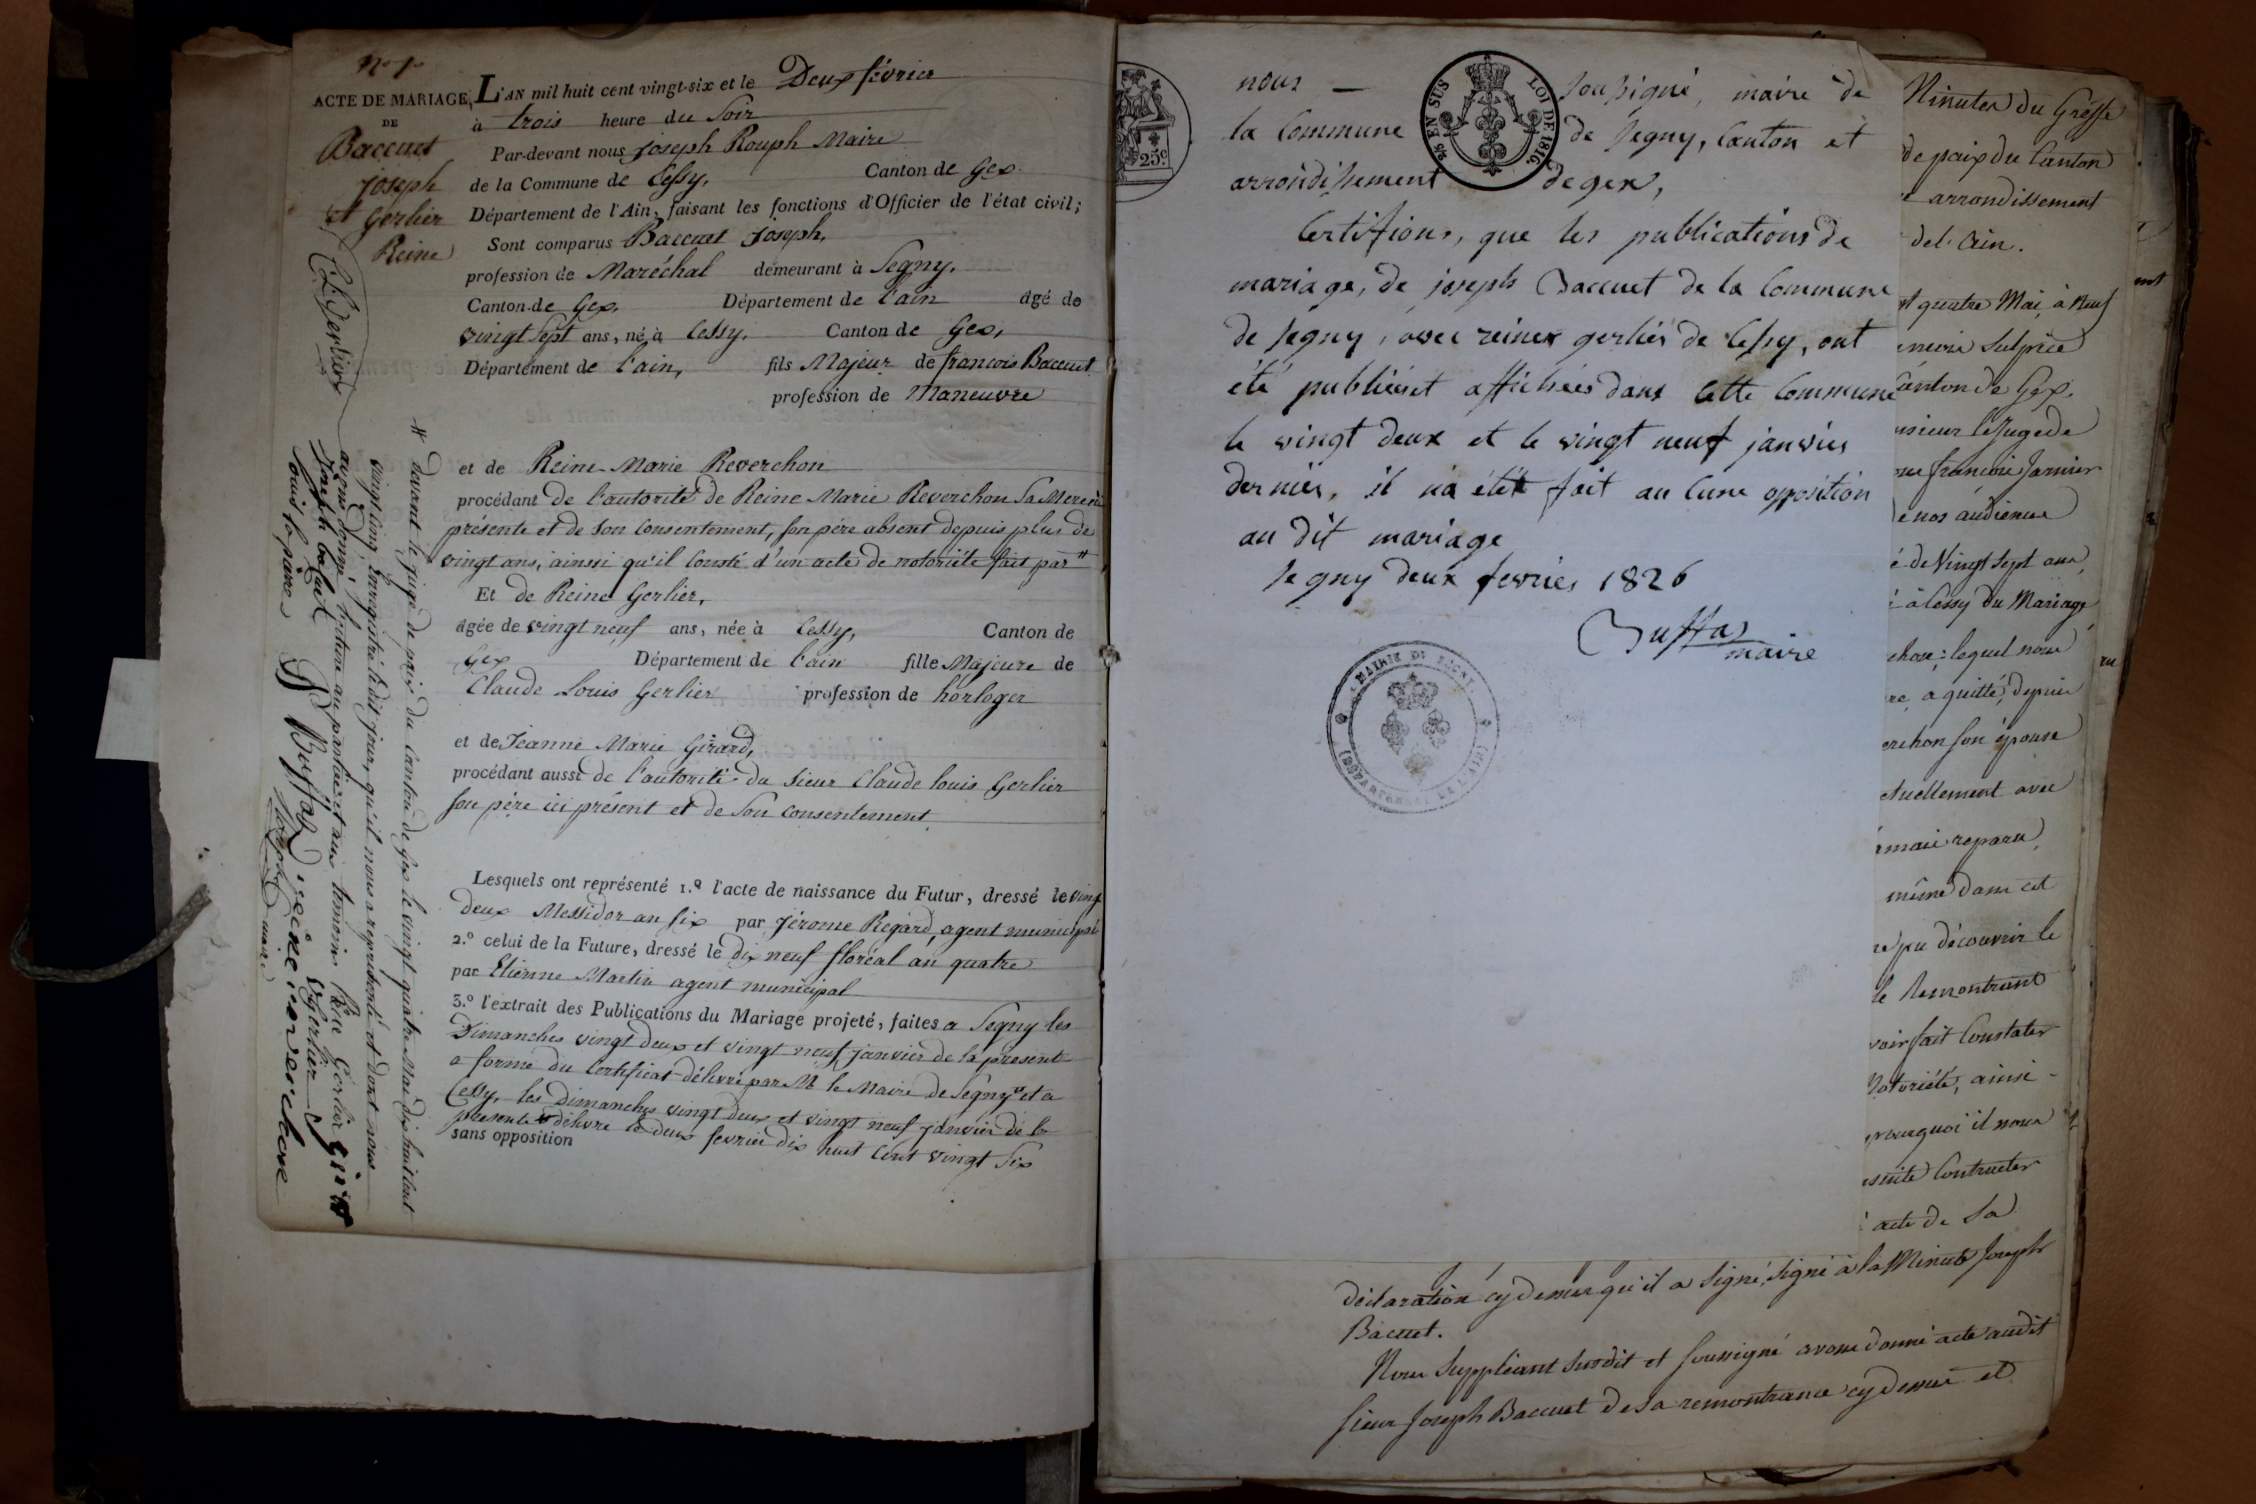 N.o 1.o
ACTE DE MARIAGE,
DE
Baccuet
Joseph
et Gerlier
Reine
L'AN mil huit cent vingt-six et le Deux février
à trois heure du Soir
Par-devant nous Joseph Rouph Maire
de la Commune de Cessy, Canton de Gex
Département de l'Ain, faisant les fonctions d'Officier de l'état civil;
Sont comparus Baccuet Joseph,
profession de Maréchal demeurant à Segny,
Canton de Gex, Département de l'ain âgé de
vingt Sept ans, né à Cessy, Canton de Gex,
Département de l'ain, fils Majeur de francois Baccuet
profession de Maneuvre
et de Reine Marie Reverchon
procédant de l'autorité de Reine Marie Reverchon Sa Mere ici
présente et de Son Consentement, son père absent depuis plus de
vingt ans, ainssi qu'il Consté d'un acte de notoriété fait par #
Et de Reine Gerlier,
âgée de vingt neuf ans, née à Cessy, Canton de
Gex Département de l'ain fille Majeure de
Claude Louis Gerlier profession de horloger
et de Jeanne Marie Girard,
procédant aussi de l'autorité du Sieur Claude Louis Gerlier
son père ici présent et de Son Consentement
Lesquels ont représenté 1.o l'acte de naissance du Futur, dressé le vingt
deux Messidor an Six par Jérome Regard, agent municipal
2.o celui de la Future, dressé le dix neuf floréal an quatre
par Etienne Martin agent municipal
3.o l'extrait des Publications du Mariage projeté, faites a Segny les
Dimanches vingt deux et vingt neuf janvier de la présent
a forme du Certificat délivré par M le Maire de Segny et a
Cessy, les Dimanches vingt deux et vingt neuf janvier de la
presente délivre le deux fevrier dix huit Cent vingt Six
sans opposition
# devant le juge de paix du Canton de Gex le vingt quatre Mai dix huit Cent
vingt Cinq, Enregistré le dit jour, qu'il nous a représenté et dont nous
avons donné,
Joseph bacuet
Buffaz
reine marie reverchone
maire
nous — soussigné, maire de
la Commune de Segny, Canton et
arrondissement de gex,
Certifions, que les publications de
mariage, de joseph Baccuet de la Commune
de Segny, avec reine gerlier de Cessy, ont
été publiées et affichées dans Cette Commune
le vingt deux et le vingt neuf janvier
dernier, il n'a été fait au Cune opposition
au dit mariage
Segny deux fevrier 1826
Buffaz
maire
25 EN SUS
LOI DE 1816.
25c.
MAIRIE DE SEGNY.
(DÉPARTEMENT DE L'AIN)
Minutes du Greffe
de paix du Canton
arrondissement
del'Ain.
quatre Mai, à Neuf
Sulpice
Canton de Gex,
lejugede
francois Janvier
nos audience
é de Vingt Sept ans,
à Cessy du Mariage
lequel nous
a quitté, depuis
son épouse
avec
reparu,
même dans cet
pu découvrir le
le Remontrant
fait Constater
Notoriété, ainsi
pourquoi il nous
Contracter
acte de Sa
déclaration cydessus qu'il a signé, signé à la Minute Joseph
Bacuet.
Nous Suppléant Susdit et soussigné avons donné acte audit
sieur Joseph Baccuet de sa remontrance cydessus et